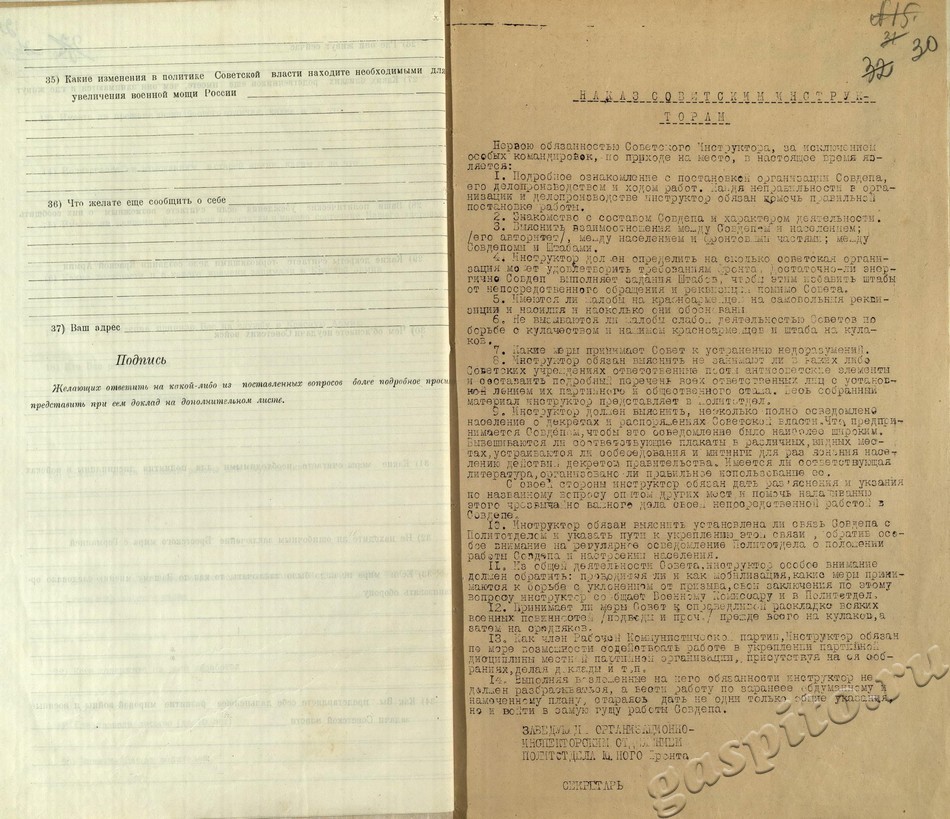 35) Какие изменения в политике Советской власти находите необходимыми для
увеличения военной мощи России
36) Что желате еще сообщить о себе
37) Ваш адрес
Подпись
Желающих ответить на какой-либо из поставленных вопросов более подробное просим
представить при сем доклад на дополнительном листе.
№15.
31
32 30
НАКАЗ СОВЕТСКИМ ИНСТРУК-
ТОРАМ
Первою обязанностью Советского Инструктора, за исключением
особых командировок, по приходе на место, в настоящее время яв-
ляется:
1. Подробное ознакомление с постановкой организации Совдепа,
его делопроизводством и ходом работ. Найдя неправильности в орга-
низации и делопроизводстве инструктор обязан помочь правильной
постановке работы.
2. Знакомство с составом Совдепа и характером деятельности.
3. Выяснить взаимоотношения между Совдепом и населением;
/его авторитет/, между населением и фронтовыми частями; между
Совдепоми и Штабами.
4. Инструктор должен определить на сколько советская органи-
зация может удовлетворить требованиям фронта. Достаточно-ли энер-
гично Совдеп выполняет задания Штабов, чтобы этим избавить штабы
от непосредственного обращения и реквизиции помимо Совета.
5. Имеются ли жалобы на красноармейцев на самовольныя рекви-
зиции и насилия и насколько они обоснованы
6. Не вызываются ли жалобы слабой деятельностью Советов по
борьбе с кулачеством и нажимом красноармейцев и штаба на кула-
ков.
7. Какие меры принимает Совет к устранению недоразумений.
8. Инструктор обязан выяснить не занимают ли в каких либо
Советских учреждениях ответственные посты антисоветские элементы
и составить подробный перечень всех ответственных лиц с установ-
лением их партийного и общественного стажа. Весь собранный
материал инструктор представляет в Политотдел.
9. Инструктор должен выяснить, несколько полно осведомлено
население о декретах и распоряжениях Советской власти. Что предпри-
нимается Совдепом, чтобы это осведомление было наиболее широким.
Вывешиваются ли соответствующие плакаты в различных, видных мес-
тах, устраиваются ли собеседования и митинги для раз'яснения насе-
лению действий декретов правительства. Имеется ли соответствующая
литература, организовано ли правильное использование ее.
С своей стороны инструктор обязан дать раз'яснения и указания
по названному вопросу опытом других мест и помочь налаживанию
этого чрезвычайно важного дела своей непосредственной работой в
Совдепе.
10. Инструктор обязан выяснить установлена ли связь Совдепа с
Политотделом и указать пути к укреплению этой связи, обратив осо-
бое внимание на регулярное осведомление Политотдела о положении
работы Совдепа и настроении населения.
11. Из общей деятельности Совета, инструктор особое внимание
должен обратить: проводится ли и как мобилизация, какие меры прини-
маются к борьбе с уклонением от призыва, свои заключения по этому
вопросу инструктор сообщает Военному Комиссару и в Политотдел.
12. Принимает ли меры Совет к справедливой раскладке всяких
военных повинностей /подводы и проч./ прежде всего на кулаков, а
затем на средняков.
13. Как член Рабочей Коммунистической партии, Инструктор обязан
по мере возможности содействовать работе в укреплении партийной
дисциплины местной партийной организации, присутствуя на ея соб-
раниях, делая доклады и т.п.
14. Выполняя возложенные на него обязанности инструктор не
должен разбрасываться, а вести работу по заранее обдуманному и
намеченному плану, стараясь дать не одни только общие указания,
но и войти в самую гущу работы Совдепа.
ЗАВЕДУЮЩИЙ ОРГАНИЗАЦИОННО-
ИНСПЕКТОРСКИМ ОТДЕЛЕНИЕМ
ПОЛИТОТДЕЛА ЮЖНОГО фронта
СЕКРЕТАРЬ
gaspito.ru